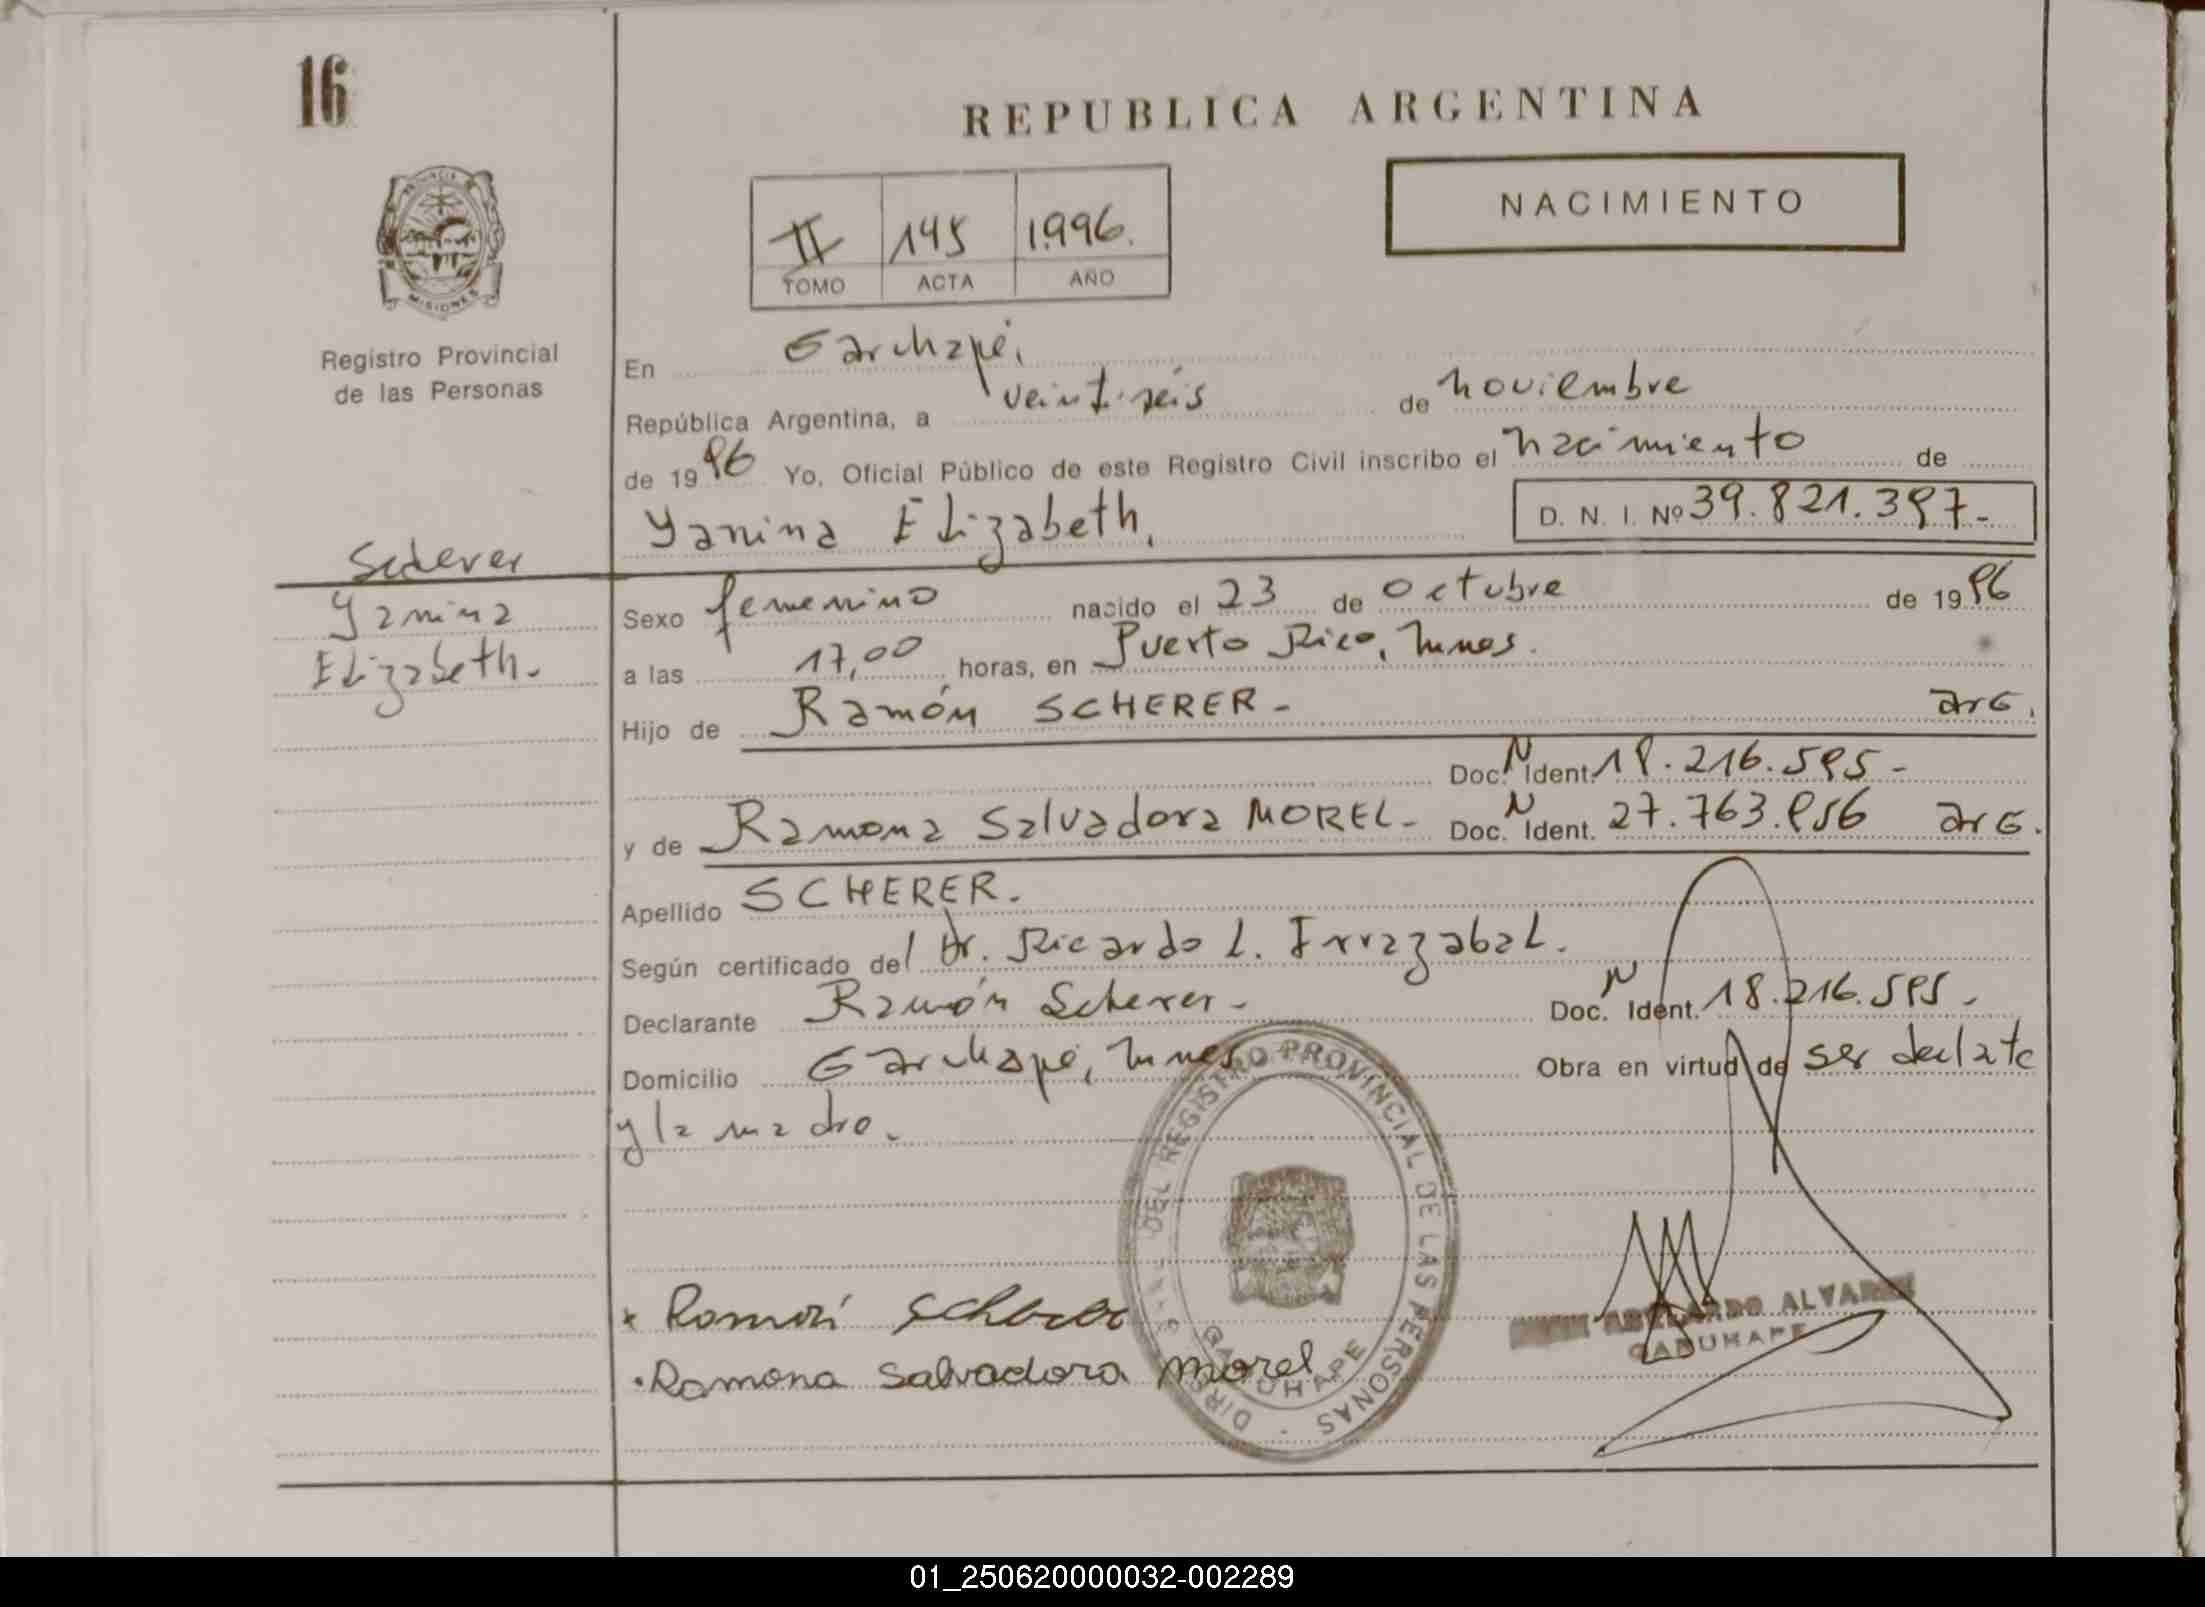 16
REPUBLICA ARGENTINA
NACIMIENTO
II 145 1.996.
TOMO ACTA AÑO
PROVINCIA DE
MISIONES
Registro Provincial
de las Personas
En Garuhapé,
República Argentina, a veintiséis de noviembre
de 1996 Yo, Oficial Público de este Registro Civil inscribo el nacimiento de
Yanina Elizabeth. D. N. I. Nº 39.821.397.-
Scherer
Yanina
Elizabeth.-
Sexo femenino nacido el 23 de octubre de 1996
a las 17,00 horas, en Puerto Rico, Mnes.
Hijo de Ramón SCHERER.- arG.
Doc. N Ident. 18.216.595.-
y de Ramona Salvadora MOREL.- Doc. N Ident. 27.763.856 arG.
Apellido SCHERER.
Según certificado del Dr. Ricardo L. Irrazabal.
Declarante Ramón Scherer.- Doc. N Ident. 18.216.595.-
Domicilio Garuhapé, Mnes Obra en virtud de ser declate
y la madre.
DEL REGISTRO PROVINCIAL DE LAS PERSONAS
GARUHAPE
Ramón Scherer
Ramona Salvadora Morel
ALVAREZ
GARUHAPE
01_250620000032-002289